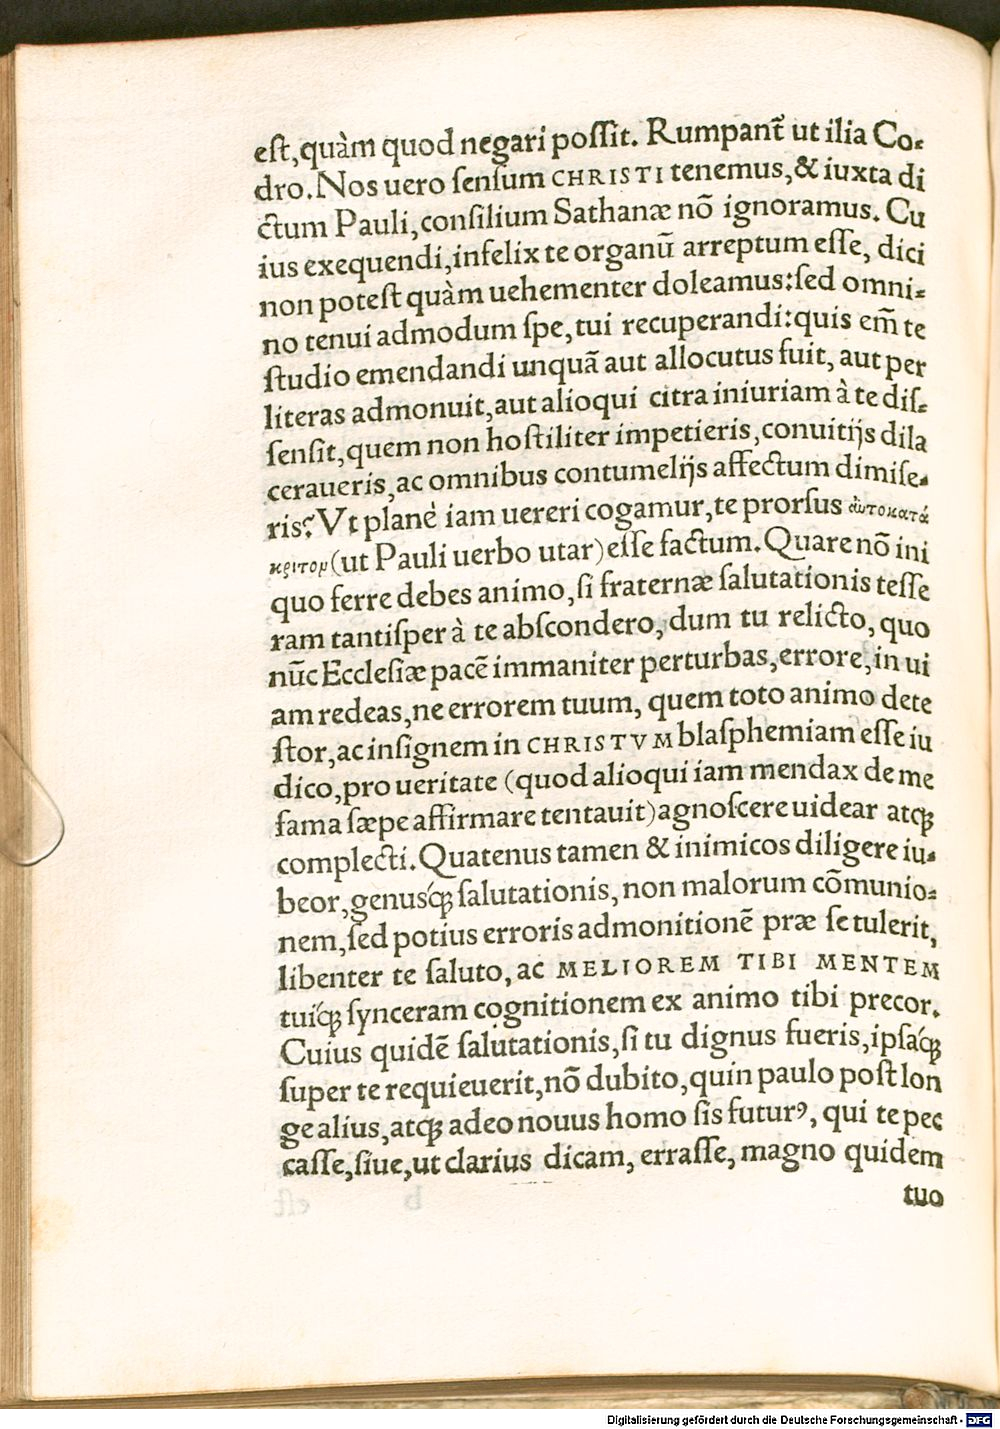 est,quàm quod negari possit. Rumpant̃ ut ilia Co-
dro. Nos uero sensum CHRISTI tenemus,& iuxta di
ctum Pauli, consilium Sathanæ nõ ignoramus. Cu
ius exequendi,infelix te organũ arreptum esse, dici
non potest quàm uehementer doleamus:sed omni-
no tenui admodum spe,tui recuperandi:quis em̃ te
studio emendandi unquã aut allocutus fuit, aut per
literas admonuit,aut alioqui citra iniuriam à te dis-
sensit,quem non hostiliter impetieris,conuitijs dila
ceraueris,ac omnibus contumelijs affectum dimise-
ris? Vt planè iam uereri cogamur,te prorsus αὐτοκατά
κριτον(ut Pauli uerbo utar)esse factum. Quare nõ ini
quo ferre debes animo,si fraternæ salutationis tesse
ram tantisper à te abscondero, dum tu relicto, quo
nũc Ecclesiæ pacẽ immaniter perturbas,errore,in ui
am redeas,ne errorem tuum, quem toto animo dete
stor,ac insignem in CHRISTVM blasphemiam esse iu
dico,pro ueritate (quod alioqui iam mendax de me
fama sæpe affirmare tentauit)agnoscere uidear atꝙ
complecti. Quatenus tamen & inimicos diligere iu-
beor,genusꝙ́ salutationis, non malorum cõmunio-
nem,sed potius erroris admonitionẽ præ se tulerit,
libenter te saluto, ac MELIOREM TIBI MENTEM
tuiꝙ́ synceram cognitionem ex animo tibi precor.
Cuius quidẽ salutationis,si tu dignus fueris,ipsaꝙ́
super te requieuerit,nõ dubito,quin paulo post lon
ge alius,atꝙ adeo nouus homo sis futurꝰ, qui te pec
casse,siue,ut clarius dicam, errasse, magno quidem
tuo
Digitalisierung gefördert durch die Deutsche Forschungsgemeinschaft - DFG